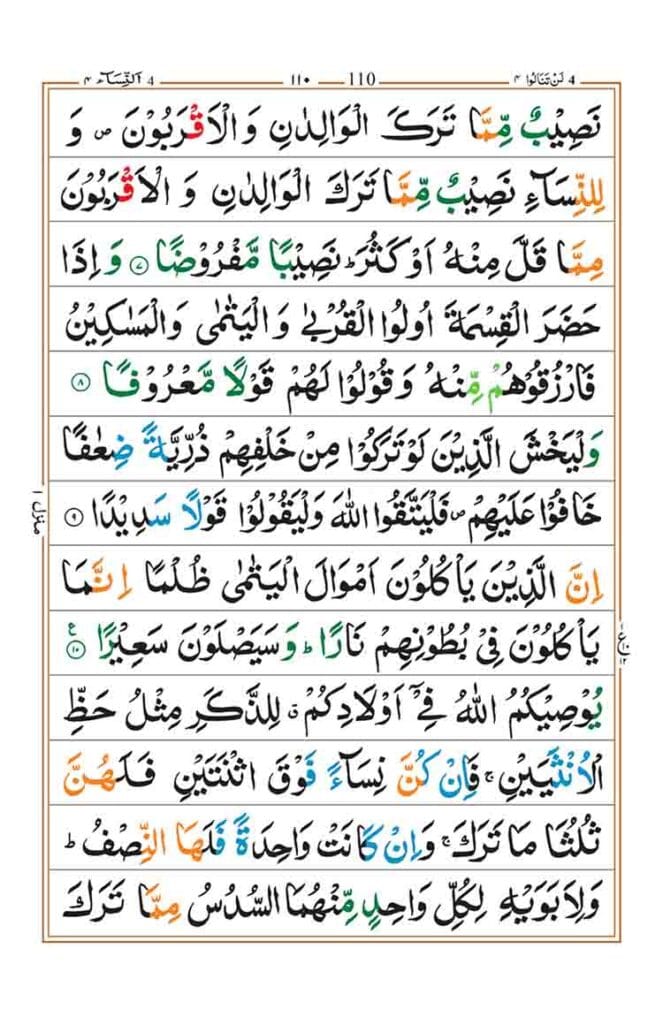 لَنْ تَنَالُوا ٤ 4 110 ١١٠ 4 اَلنِّسَاۤء ٤
نَصِيْبٌ مِّمَّا تَرَكَ الْوَالِدٰنِ وَالْاَقْرَبُوْنَ ۖ وَ
لِلنِّسَآءِ نَصِيْبٌ مِّمَّا تَرَكَ الْوَالِدٰنِ وَالْاَقْرَبُوْنَ
مِمَّا قَلَّ مِنْهُ اَوْ كَثُرَ ؕ نَصِيْبًا مَّفْرُوْضًا ﴿٧﴾ وَاِذَا
حَضَرَ الْقِسْمَةَ اُولُوا الْقُرْبٰى وَالْيَتٰمٰى وَالْمَسٰكِيْنُ
فَارْزُقُوْهُمْ مِّنْهُ وَقُوْلُوْا لَهُمْ قَوْلًا مَّعْرُوْفًا ﴿٨﴾
وَلْيَخْشَ الَّذِيْنَ لَوْ تَرَكُوْا مِنْ خَلْفِهِمْ ذُرِّيَّةً ضِعٰفًا
خَافُوْا عَلَيْهِمْ ۖ فَلْيَتَّقُوا اللّٰهَ وَلْيَقُوْلُوْا قَوْلًا سَدِيْدًا ﴿٩﴾
منزل ١
اِنَّ الَّذِيْنَ يَاْكُلُوْنَ اَمْوَالَ الْيَتٰمٰى ظُلْمًا اِنَّمَا
يَاْكُلُوْنَ فِيْ بُطُوْنِهِمْ نَارًا ؕ وَسَيَصْلَوْنَ سَعِيْرًا ﴿١٠﴾ ع
يُوْصِيْكُمُ اللّٰهُ فِيْۤ اَوْلَادِكُمْ ۗ لِلذَّكَرِ مِثْلُ حَظِّ
الْاُنْثَيَيْنِ ۚ فَاِنْ كُنَّ نِسَآءً فَوْقَ اثْنَتَيْنِ فَلَهُنَّ
ثُلُثَا مَا تَرَكَ ۚ وَاِنْ كَانَتْ وَاحِدَةً فَلَهَا النِّصْفُ ؕ
وَلِاَبَوَيْهِ لِكُلِّ وَاحِدٍ مِّنْهُمَا السُّدُسُ مِمَّا تَرَكَ